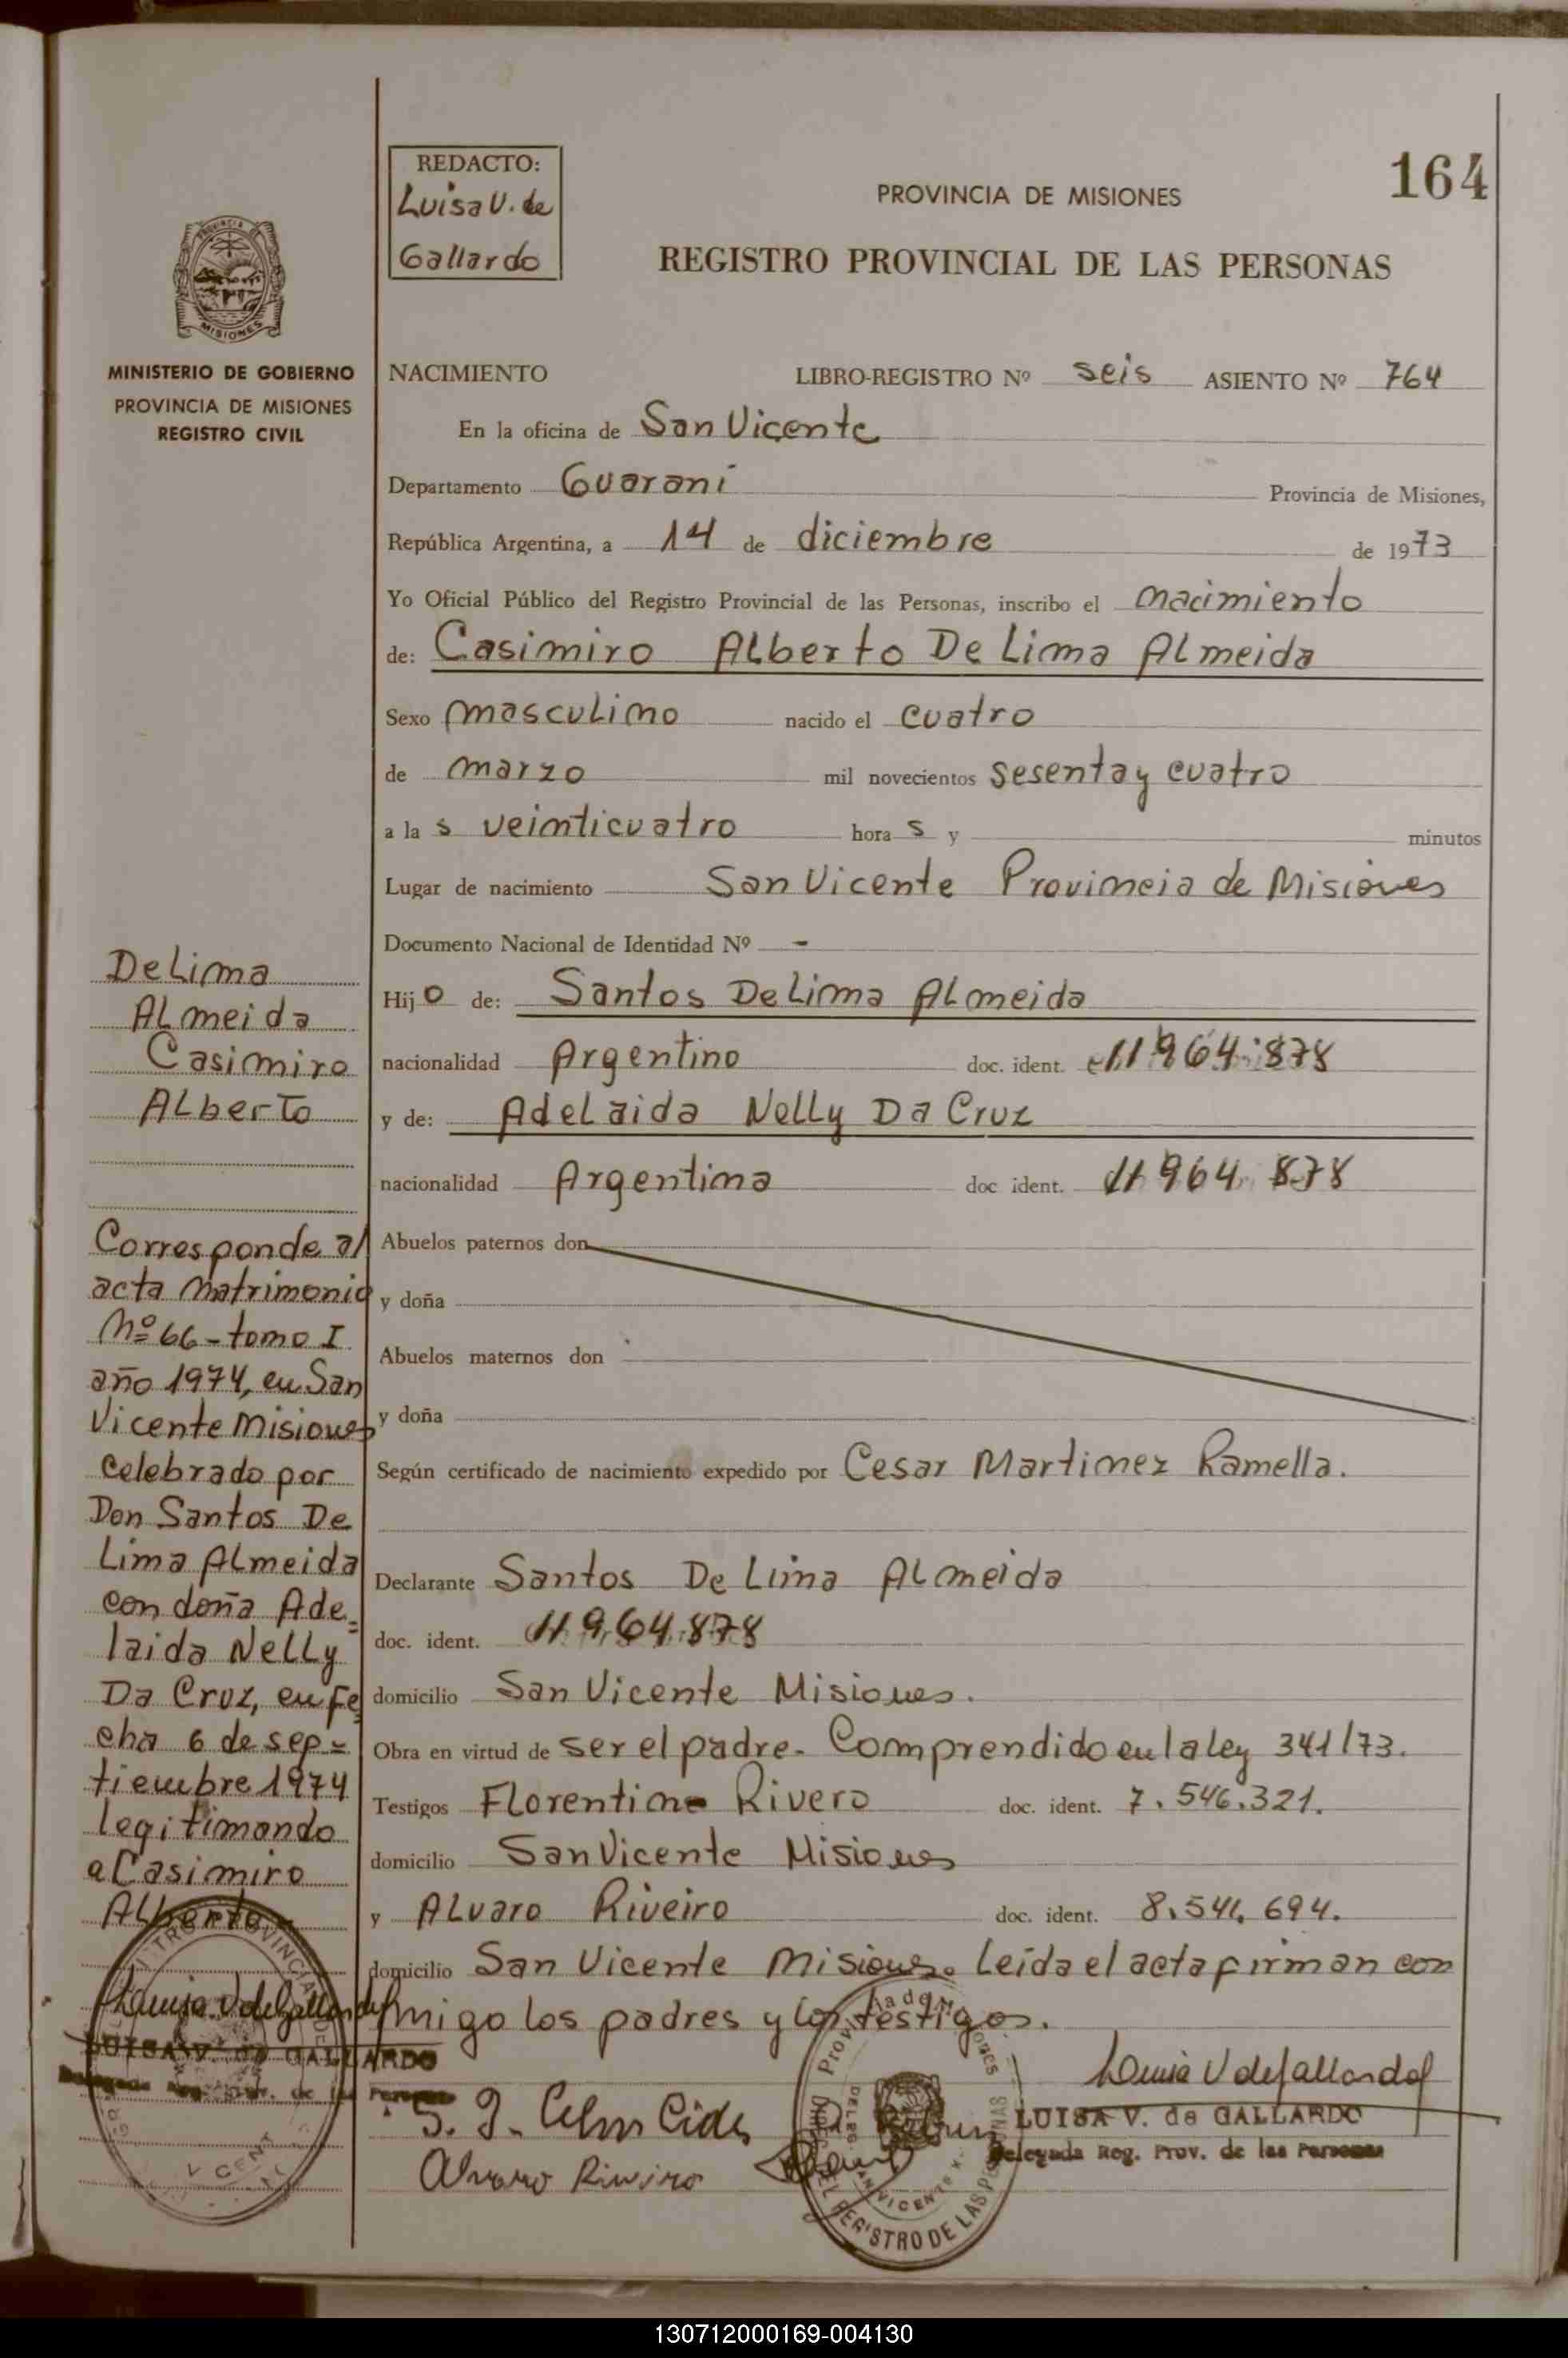 164
REDACTO:
Luisa V. de
Gallardo
PROVINCIA DE MISIONES
REGISTRO PROVINCIAL DE LAS PERSONAS
MISIONES
MINISTERIO DE GOBIERNO
PROVINCIA DE MISIONES
REGISTRO CIVIL
NACIMIENTO LIBRO-REGISTRO Nº seis ASIENTO Nº 764
En la oficina de San Vicente
Departamento Guaraní Provincia de Misiones,
República Argentina, a 14 de diciembre de 1973
Yo Oficial Público del Registro Provincial de las Personas, inscribo el nacimiento
de: Casimiro Alberto De Lima Almeida
Sexo masculino nacido el cuatro
de marzo mil novecientos sesenta y cuatro
a las veinticuatro horas y minutos
Lugar de nacimiento San Vicente Provincia de Misiones
Documento Nacional de Identidad Nº -
Hijo de: Santos De Lima Almeida
nacionalidad Argentino doc. ident. 11 964 878
y de: Adelaida Nelly Da Cruz
nacionalidad Argentina doc ident. 11 964 878
Abuelos paternos don
y doña
Abuelos maternos don
y doña
Según certificado de nacimiento expedido por Cesar Martinez Ramella.
Declarante Santos De Lima Almeida
doc. ident. 11.964.878
domicilio San Vicente Misiones.
Obra en virtud de ser el padre. Comprendido en la ley 341/73.
Testigos Florentino Rivero doc. ident. 7.546.321.
domicilio San Vicente Misiones
y Alvaro Riveiro doc. ident. 8.541.694.
domicilio San Vicente Misiones. Leída el acta firman con
migo los padres y los testigos.
De Lima
Almeida
Casimiro
Alberto
Corresponde al
acta Matrimonio
Nº 66 - tomo I
año 1974, en San
Vicente Misiones
celebrado por
Don Santos De
Lima Almeida
con doña Ade=
laida Nelly
Da Cruz, en fe
cha 6 de sep=
tiembre 1974
legitimando
a Casimiro
Alberto
Luisa V de Gallardo
LUISA V. de GALLARDO
Delegada Reg. Prov. de las Personas
Alvaro Riveiro
Luisa V de Gallardo
LUISA V. de GALLARDO
Delegada Reg. Prov. de las Personas
REGISTRO DE LAS PERSONAS
130712000169-004130